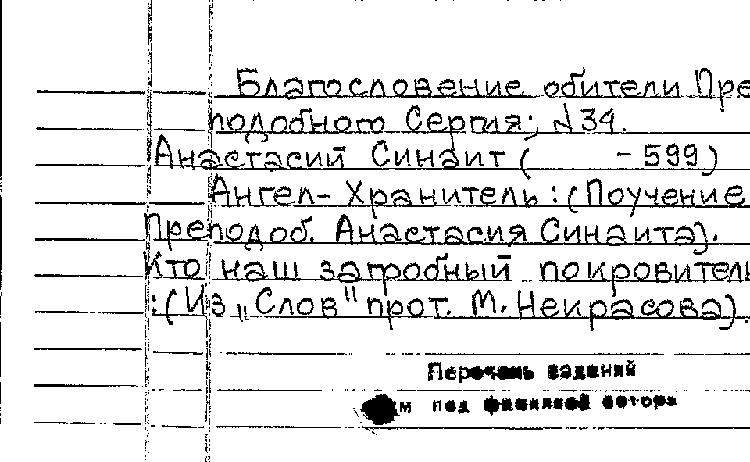 Благословение обители Пре
подобного Сергия; №34.
Анастасий Синаит ( - 599)
Ангел-Хранитель:(Поучение
Преподоб. Анастасия Синаита).
Кто наш загробный покровитель
:(Из „Слов" прот. М. Некрасова).
Перечень изданий
см под фамилией автора